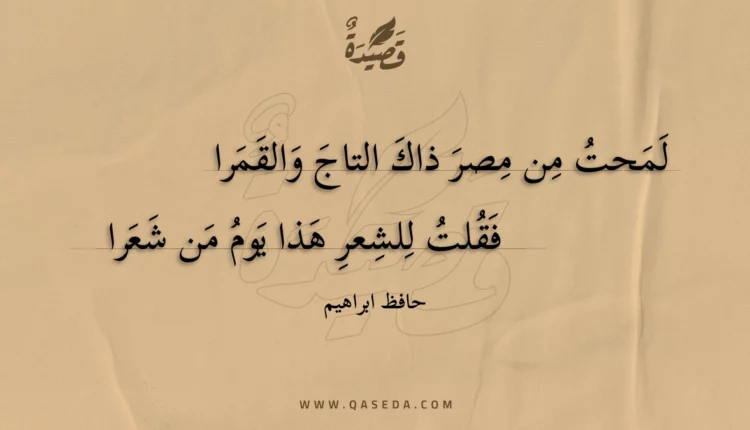 قَصِيْدَةٌ
لَمَحتُ مِن مِصرَ ذاكَ التاجَ وَالقَمَرا
فَقُلتُ لِلشِعرِ هَذا يَومُ مَن شَعَرا
حافظ ابراهيم
WWW.QASEDA.COM